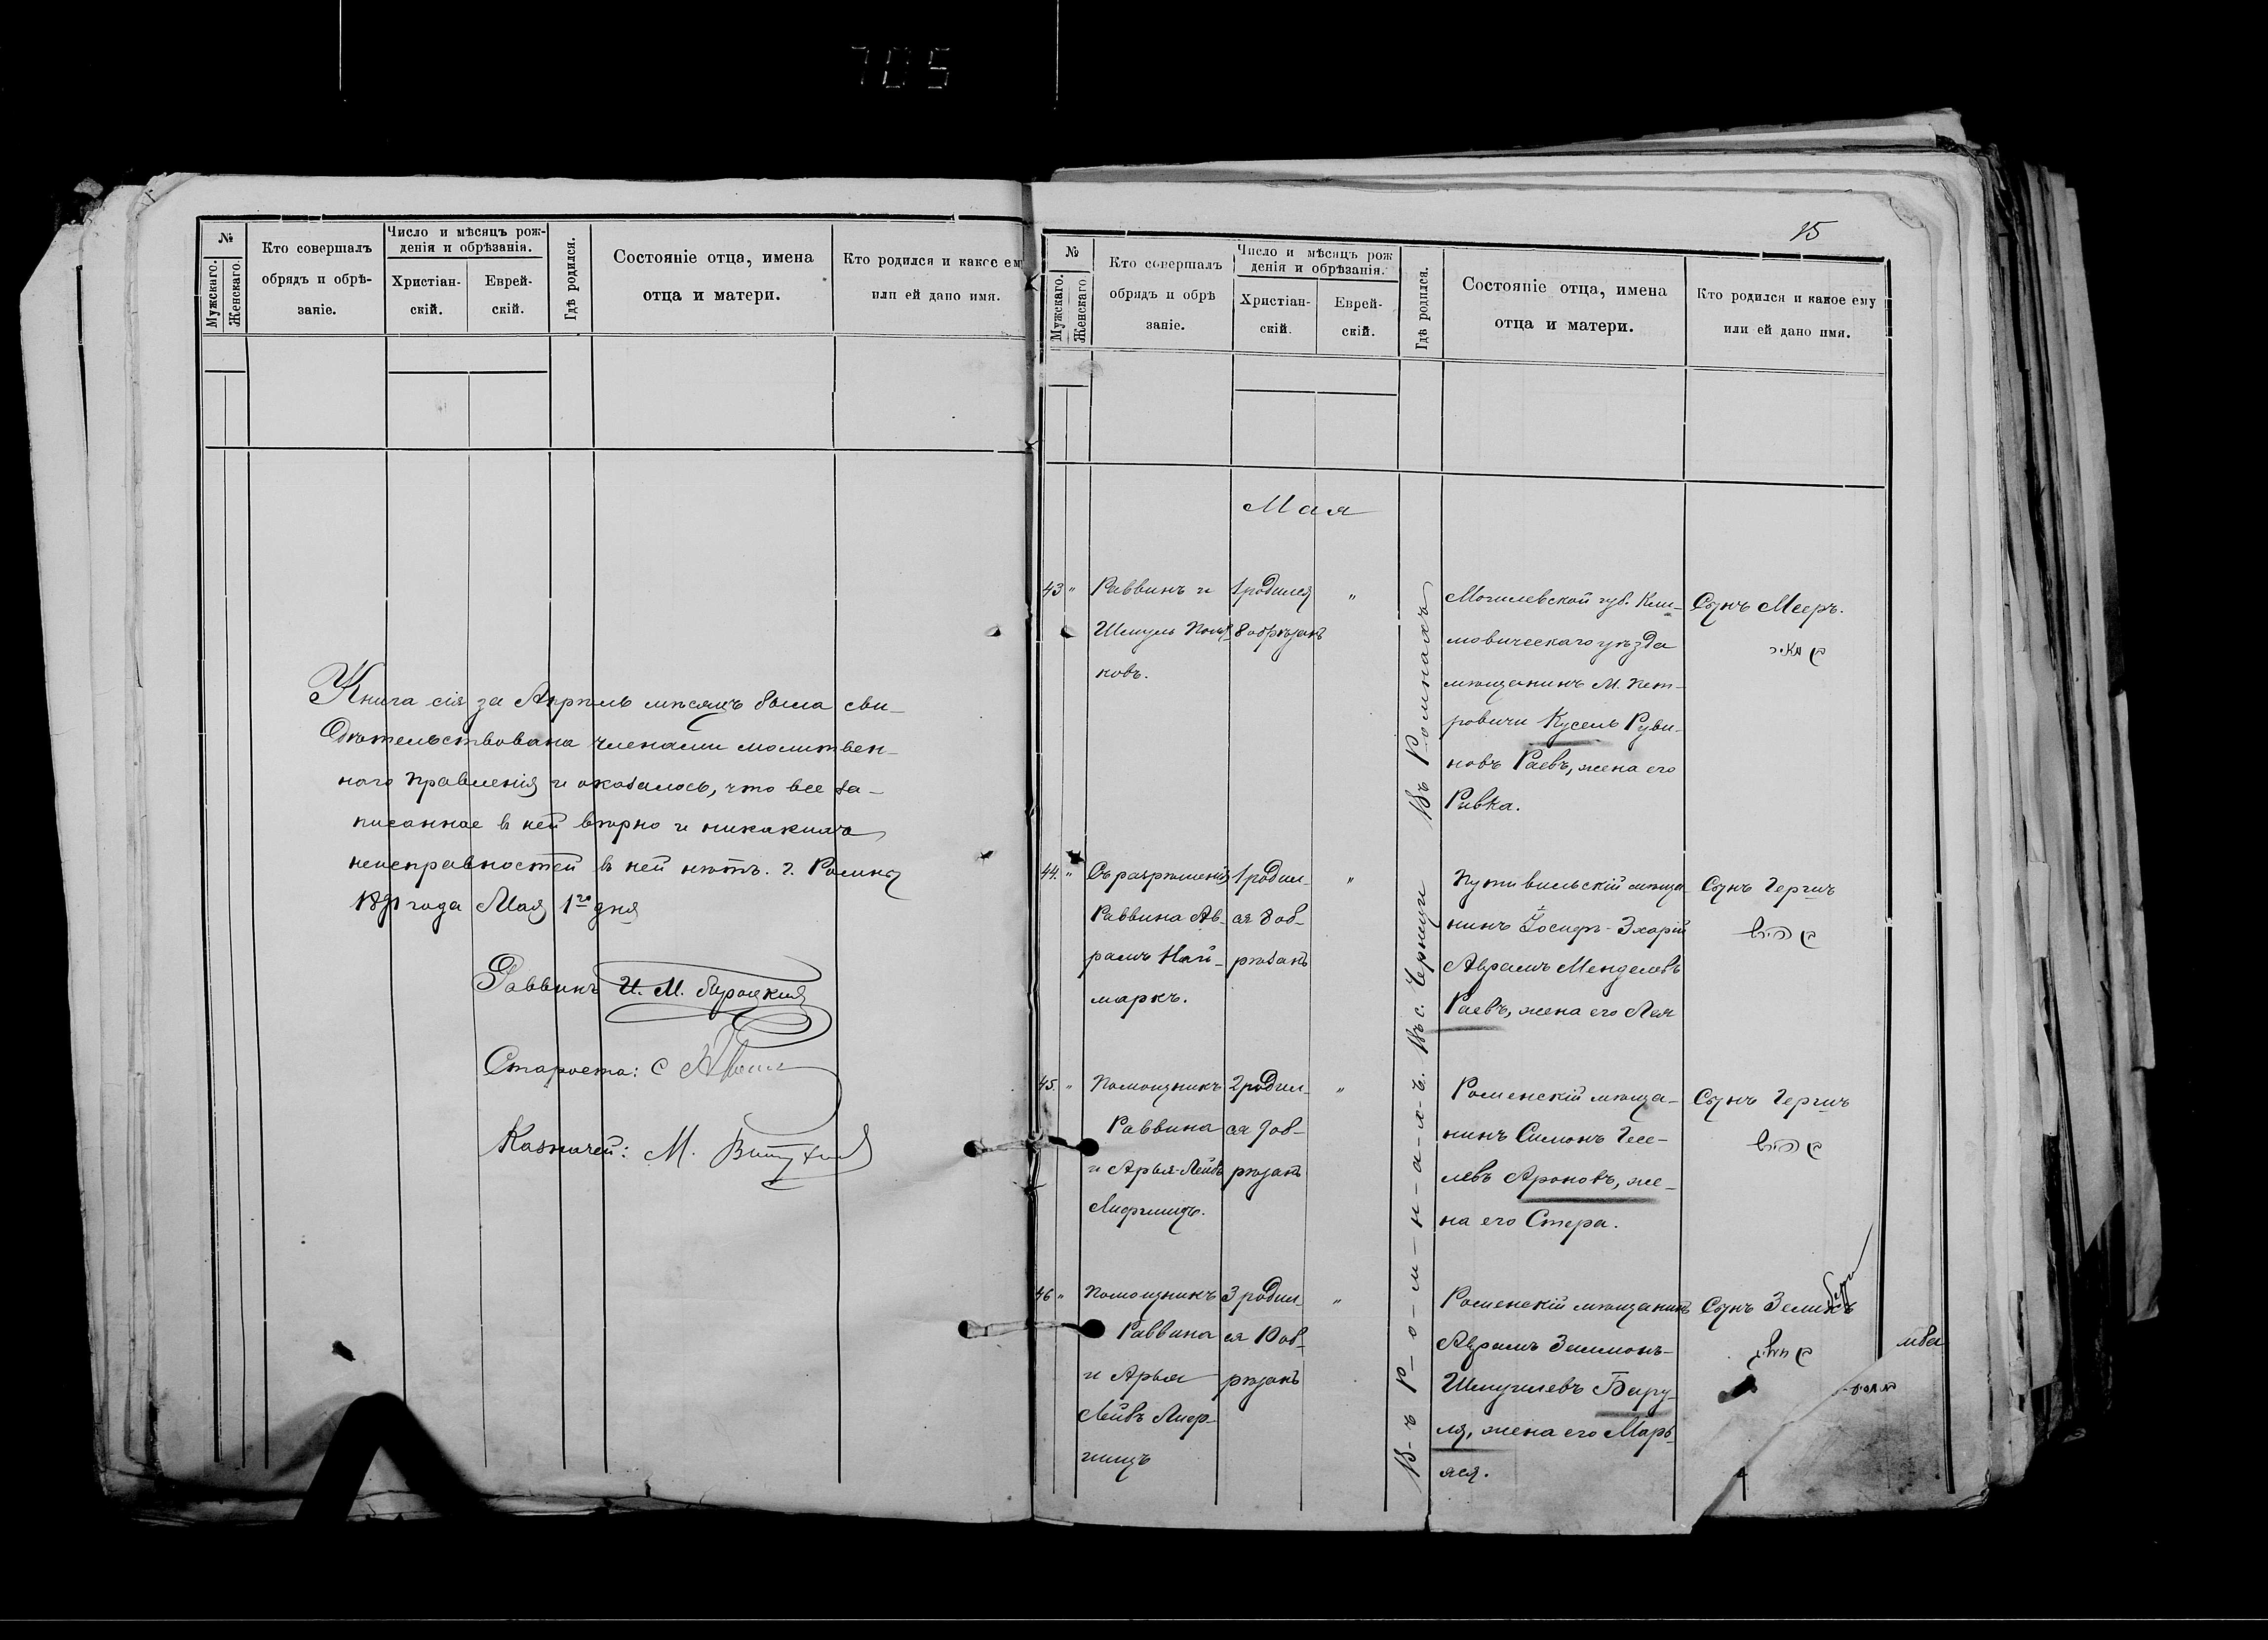 705
№
Мужскаго.
Женскаго.
Кто совершалъ
обрядъ и обрѣ-
заніе.
Число и мѣсяцъ рож-
денія и обрѣзанія.
Христіан-
скій.
Еврей-
скій.
Гдѣ родился.
Состояніе отца, имена
отца и матери.
Кто родился и какое ем
или ей дано имя.
Книга сія за Апрѣль мѣсяцъ была сви-
дѣтельствована членами молитвен-
наго правленія и оказалось, что все за-
писанное в ней вѣрно и никакихъ
неисправностей в ней нѣтъ. г. Ромны
1891 года Мая 1го дня
Раввинъ И. М.
Староста: С
Казначей: М.
15
№
Мужскаго.
Женскаго.
Кто совершалъ
обрядъ и обрѣ
заніе.
Число и мѣсяцъ рож
денія и обрѣзанія.
Христіан-
скій.
Еврей-
скій.
Гдѣ родился.
Состояніе отца, имена
отца и матери.
Кто родился и какое ему
или ей дано имя.
Мая
43 "
Раввинъ и
Шмуль Поля-
ковъ.
1 родился
8 обрѣзанъ
"
Въ Ромнахъ
Могилевской губ. Кли-
мовическаго уѣзда
мѣщанинъ м. Пет-
ровичи Кусель Руви-
новъ Раевъ, жена его
Ривка.
Сынъ Мееръ.
44. "
Съ разрѣшенія
Раввина Ав-
рамъ Най-
маркъ.
1 родил-
ся 8 об-
рѣзанъ
"
Въ с. Чернци
Путивльскій мѣща-
нинъ Іосифъ-Зхарій
Абрамъ Менделевъ
Раевъ, жена его Лея
Сынъ Гершъ
45. "
Помощникъ
Раввина
и Арья-Лейбъ
Лифшицъ.
2 родил-
ся 9 об-
рѣзанъ
"
В-ъ Р-о-м-н-а-х-ъ.
Роменскій мѣща-
нинъ Симонъ Гесе-
левъ Ароновъ, же-
на его Стера.
Сынъ Гершъ
46 "
Помощникъ
Раввина
и Арья
Лейбъ Лиф-
шицъ
3 родил-
ся 10 об-
рѣзанъ
"
Роменскій мѣщанинъ
Абрамъ Залмонъ-
Шмуилевъ Бару-
ля, жена его Марь-
яся.
Сынъ Зеликъ